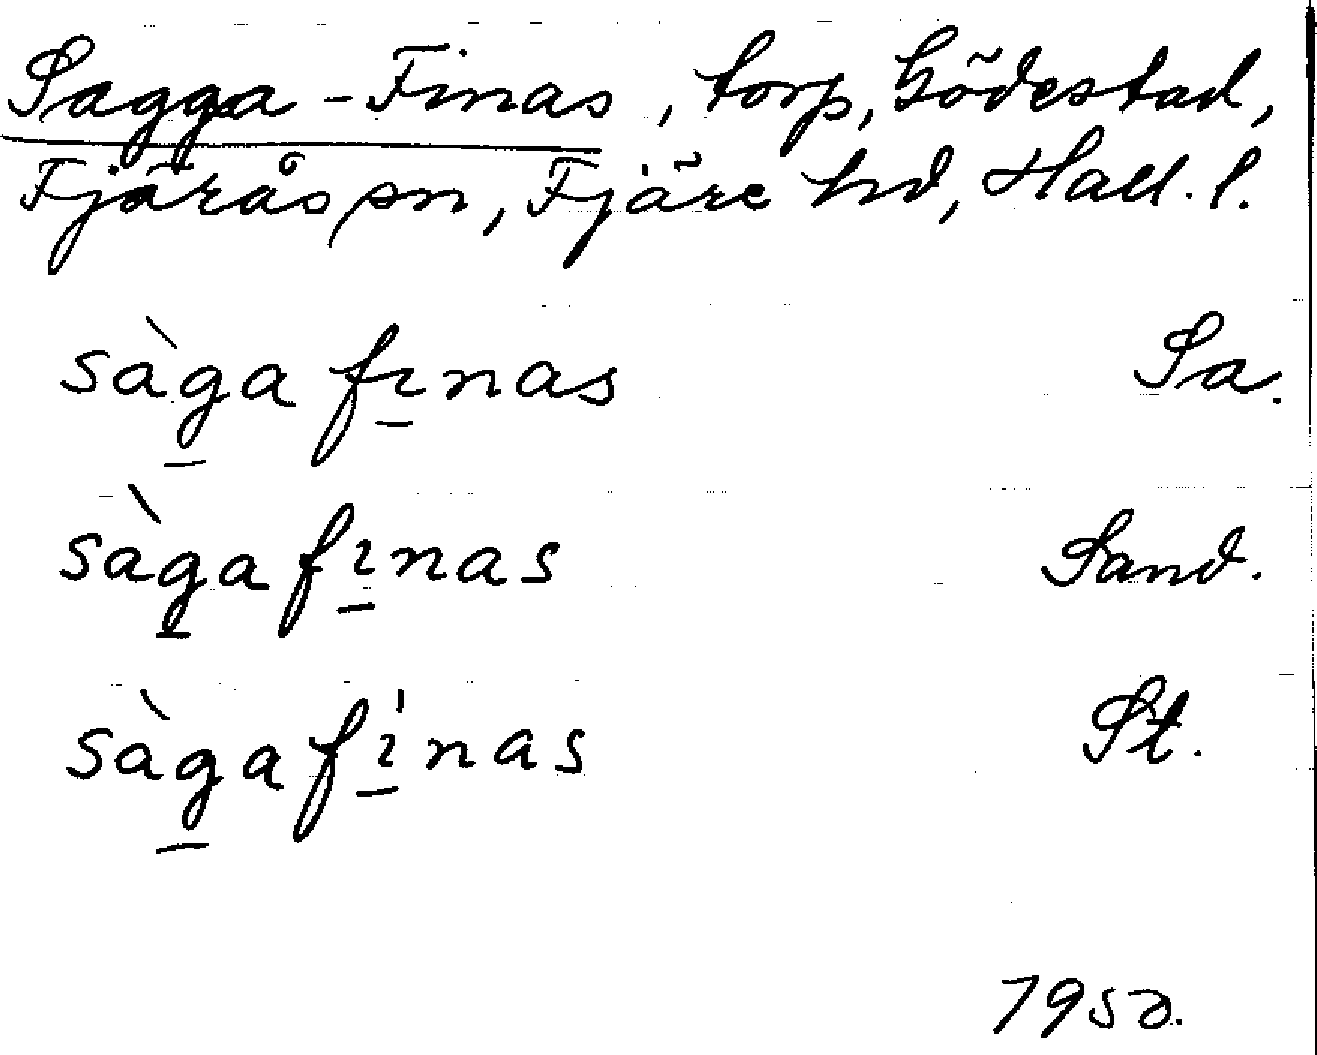 Sagga-Finas, torp, Gödestad,
Fjärås sn, Fjäre hd, Hall. l.
sàga fınas Sa.
sàga fınas Sand.
sàga fı̍nas St.
1950.